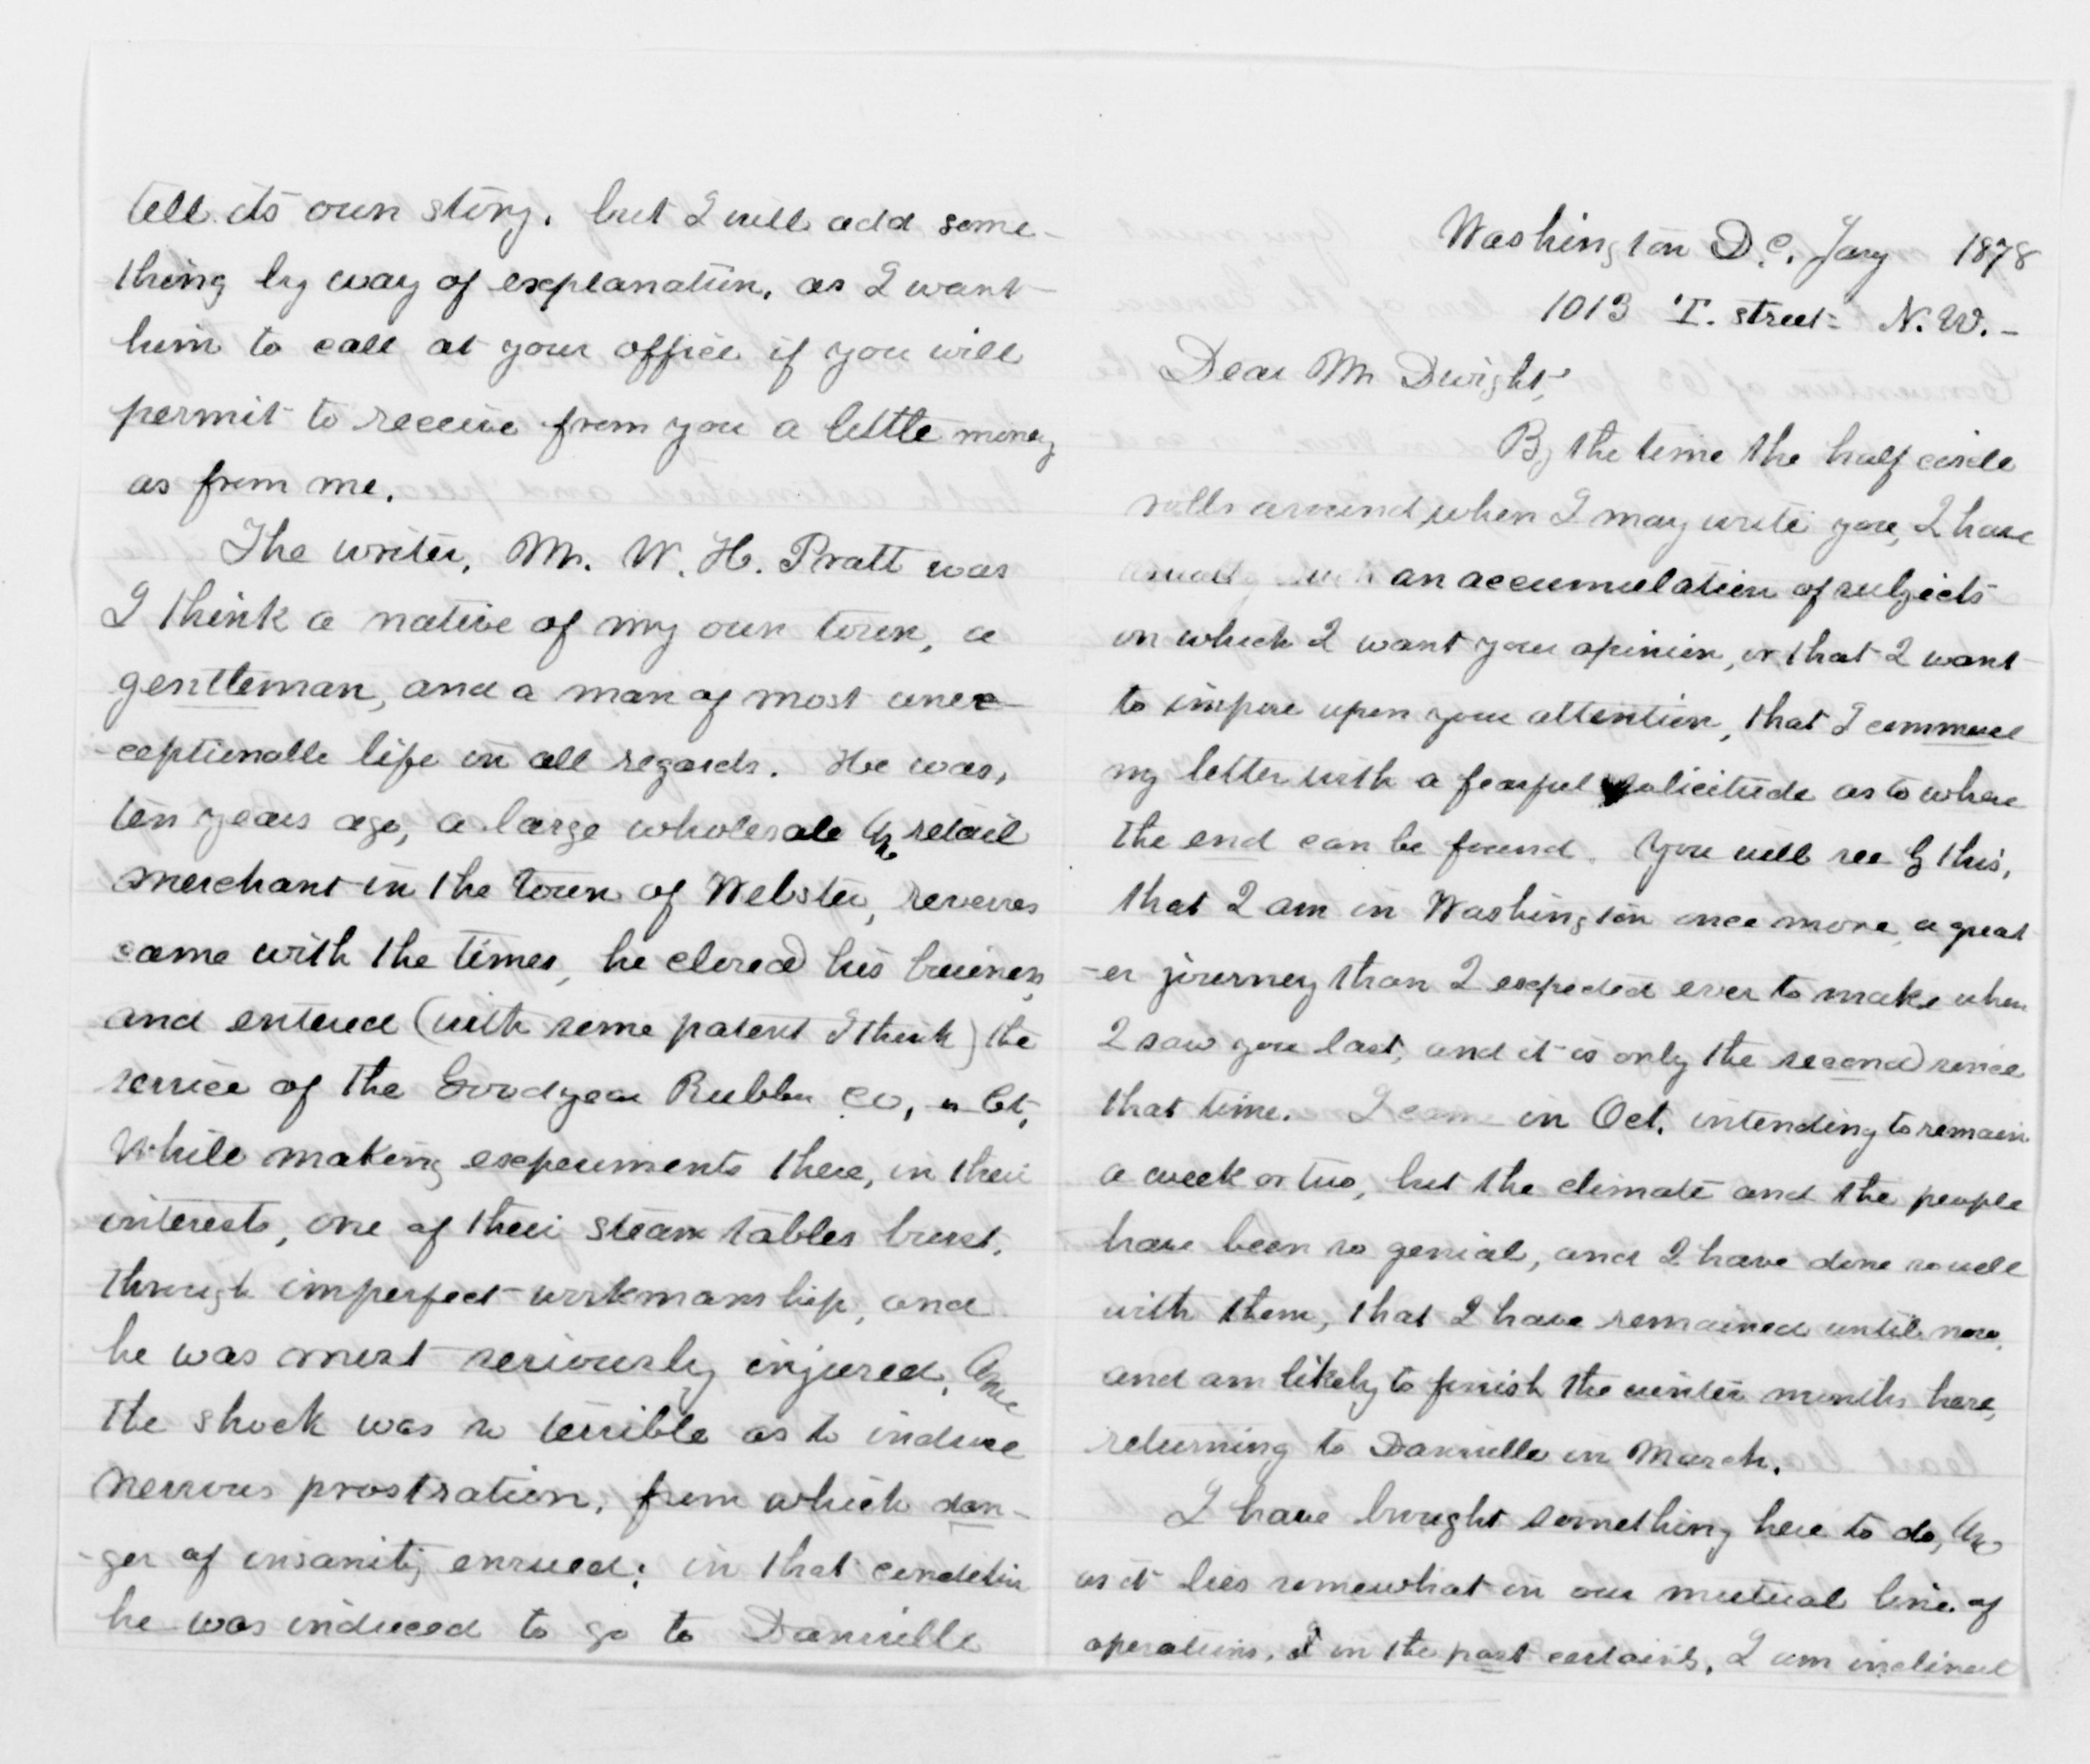 tell its own story. but I will add some-
thing by way of explanation, as I want
him to call at your office if you will
permit to receive from you a little money
as from me.
The writer, Mr. W. H. Pratt was
I think a native of my own town, a
gentleman, and a man of most unex-
-ceptionable life in all regards. He was,
ten years ago, a large wholesale & retail
merchant in the town of Webster, reverses
came with the times, he closed his business,
and entered (with some patent I think) the
service of the Goodyear Rubber Co, in Ct,
While making experiments there, in their
interests, one of their steam tables burst,
through imperfect workmanship, and
he was most seriously injured, and
the shock was so terrible as to induce
nervous prostration, from which dan-
-ger of insanity ensued; in that condition
he was induced to go to Dansville
Washington D.C. Jany 1878
1013 T. street N.W. -
Dear Mr Dwight,
By the time the half circle
rolls around when I may write you, I have
usually such an accumulation of subjects
on which I want your opinion, or that I want
to impose upon your attention, that I commence
my letter with a fearful solicitude as to where
the end can be found. You will see by this,
that I am in Washington once more, a great
-er journey than I expected ever to make when
I saw you last, and it is only the second since
that time. I came in Oct. intending to remain
a week or two, but the climate and the people
have been so genial, and I have done so well
with them, that I have remained until now,
and am likely to finish the winter months here,
returning to Dansville in March.
I have brought something here to do, and
as it lies somewhat in our mutual line of
operations, in the past certainly, I am inclined